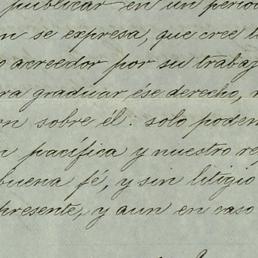 publicar en un perio
n se expresa, que cree t
acreedor por su trabaj
ra graduar ése derecho, n
on sobre él: solo podem
n pacífica y nuestro re
buena fé, y sin litigio
presente, y aun en caso